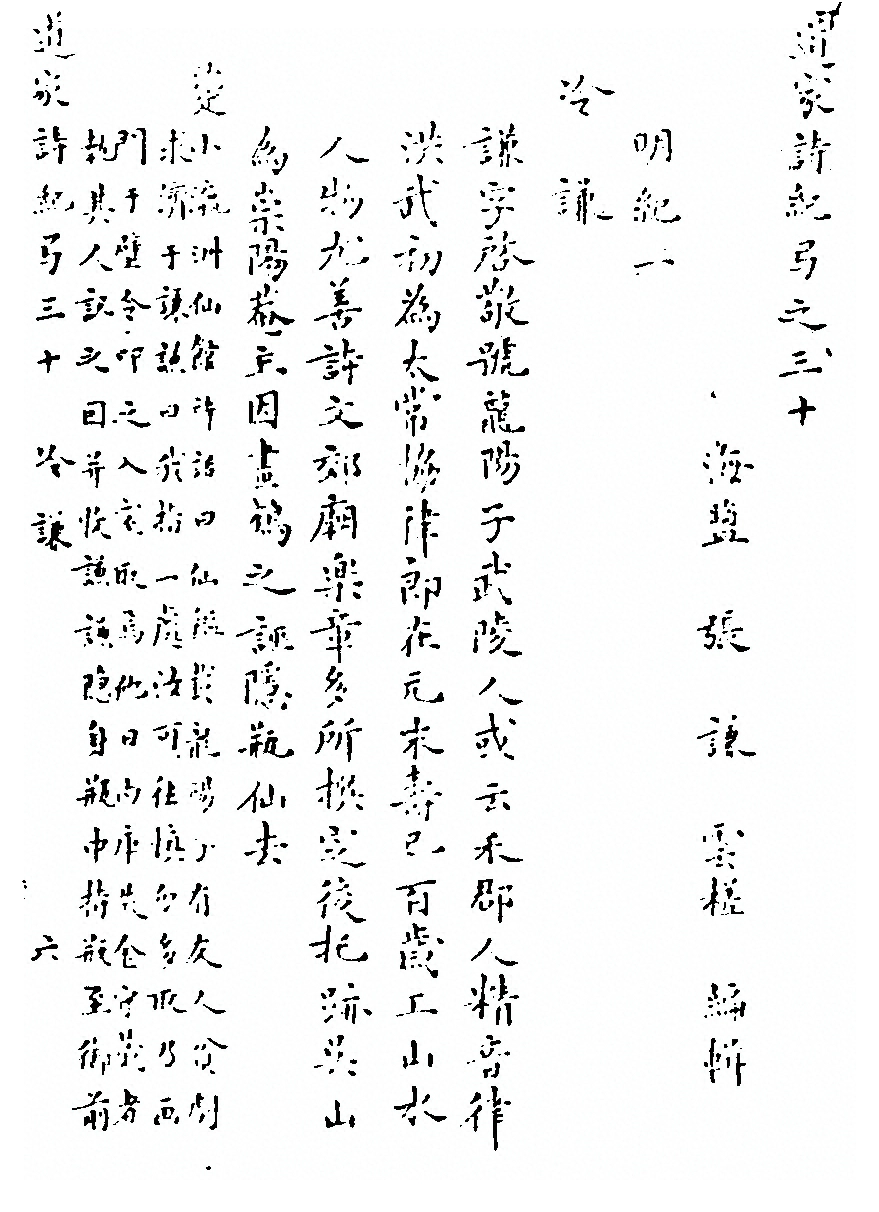 道家詩紀弓之三十
海鹽 張 謙 雲槎 編輯
明紀一
冷 謙
謙字啓敬號龍陽子武陵人或云禾郡人精音律
洪武初為太常協律郎在元末壽已百歲工山水
人物尤善詩文郊廟樂章多所撰定後托跡吳山
為崇陽菴主因畫鶴之誣隱瓶仙去
小瀛洲仙館詩話曰仙 龍陽子有友人貧
求濟于謙謙曰我指一處汝可往慎勿多取乃画
門于壁令叩之入 取焉他日内庫失金守藏者
執其人訊之因并收謙謙隐身瓶中持瓶至御前
道家詩紀弓三十 冷謙 六